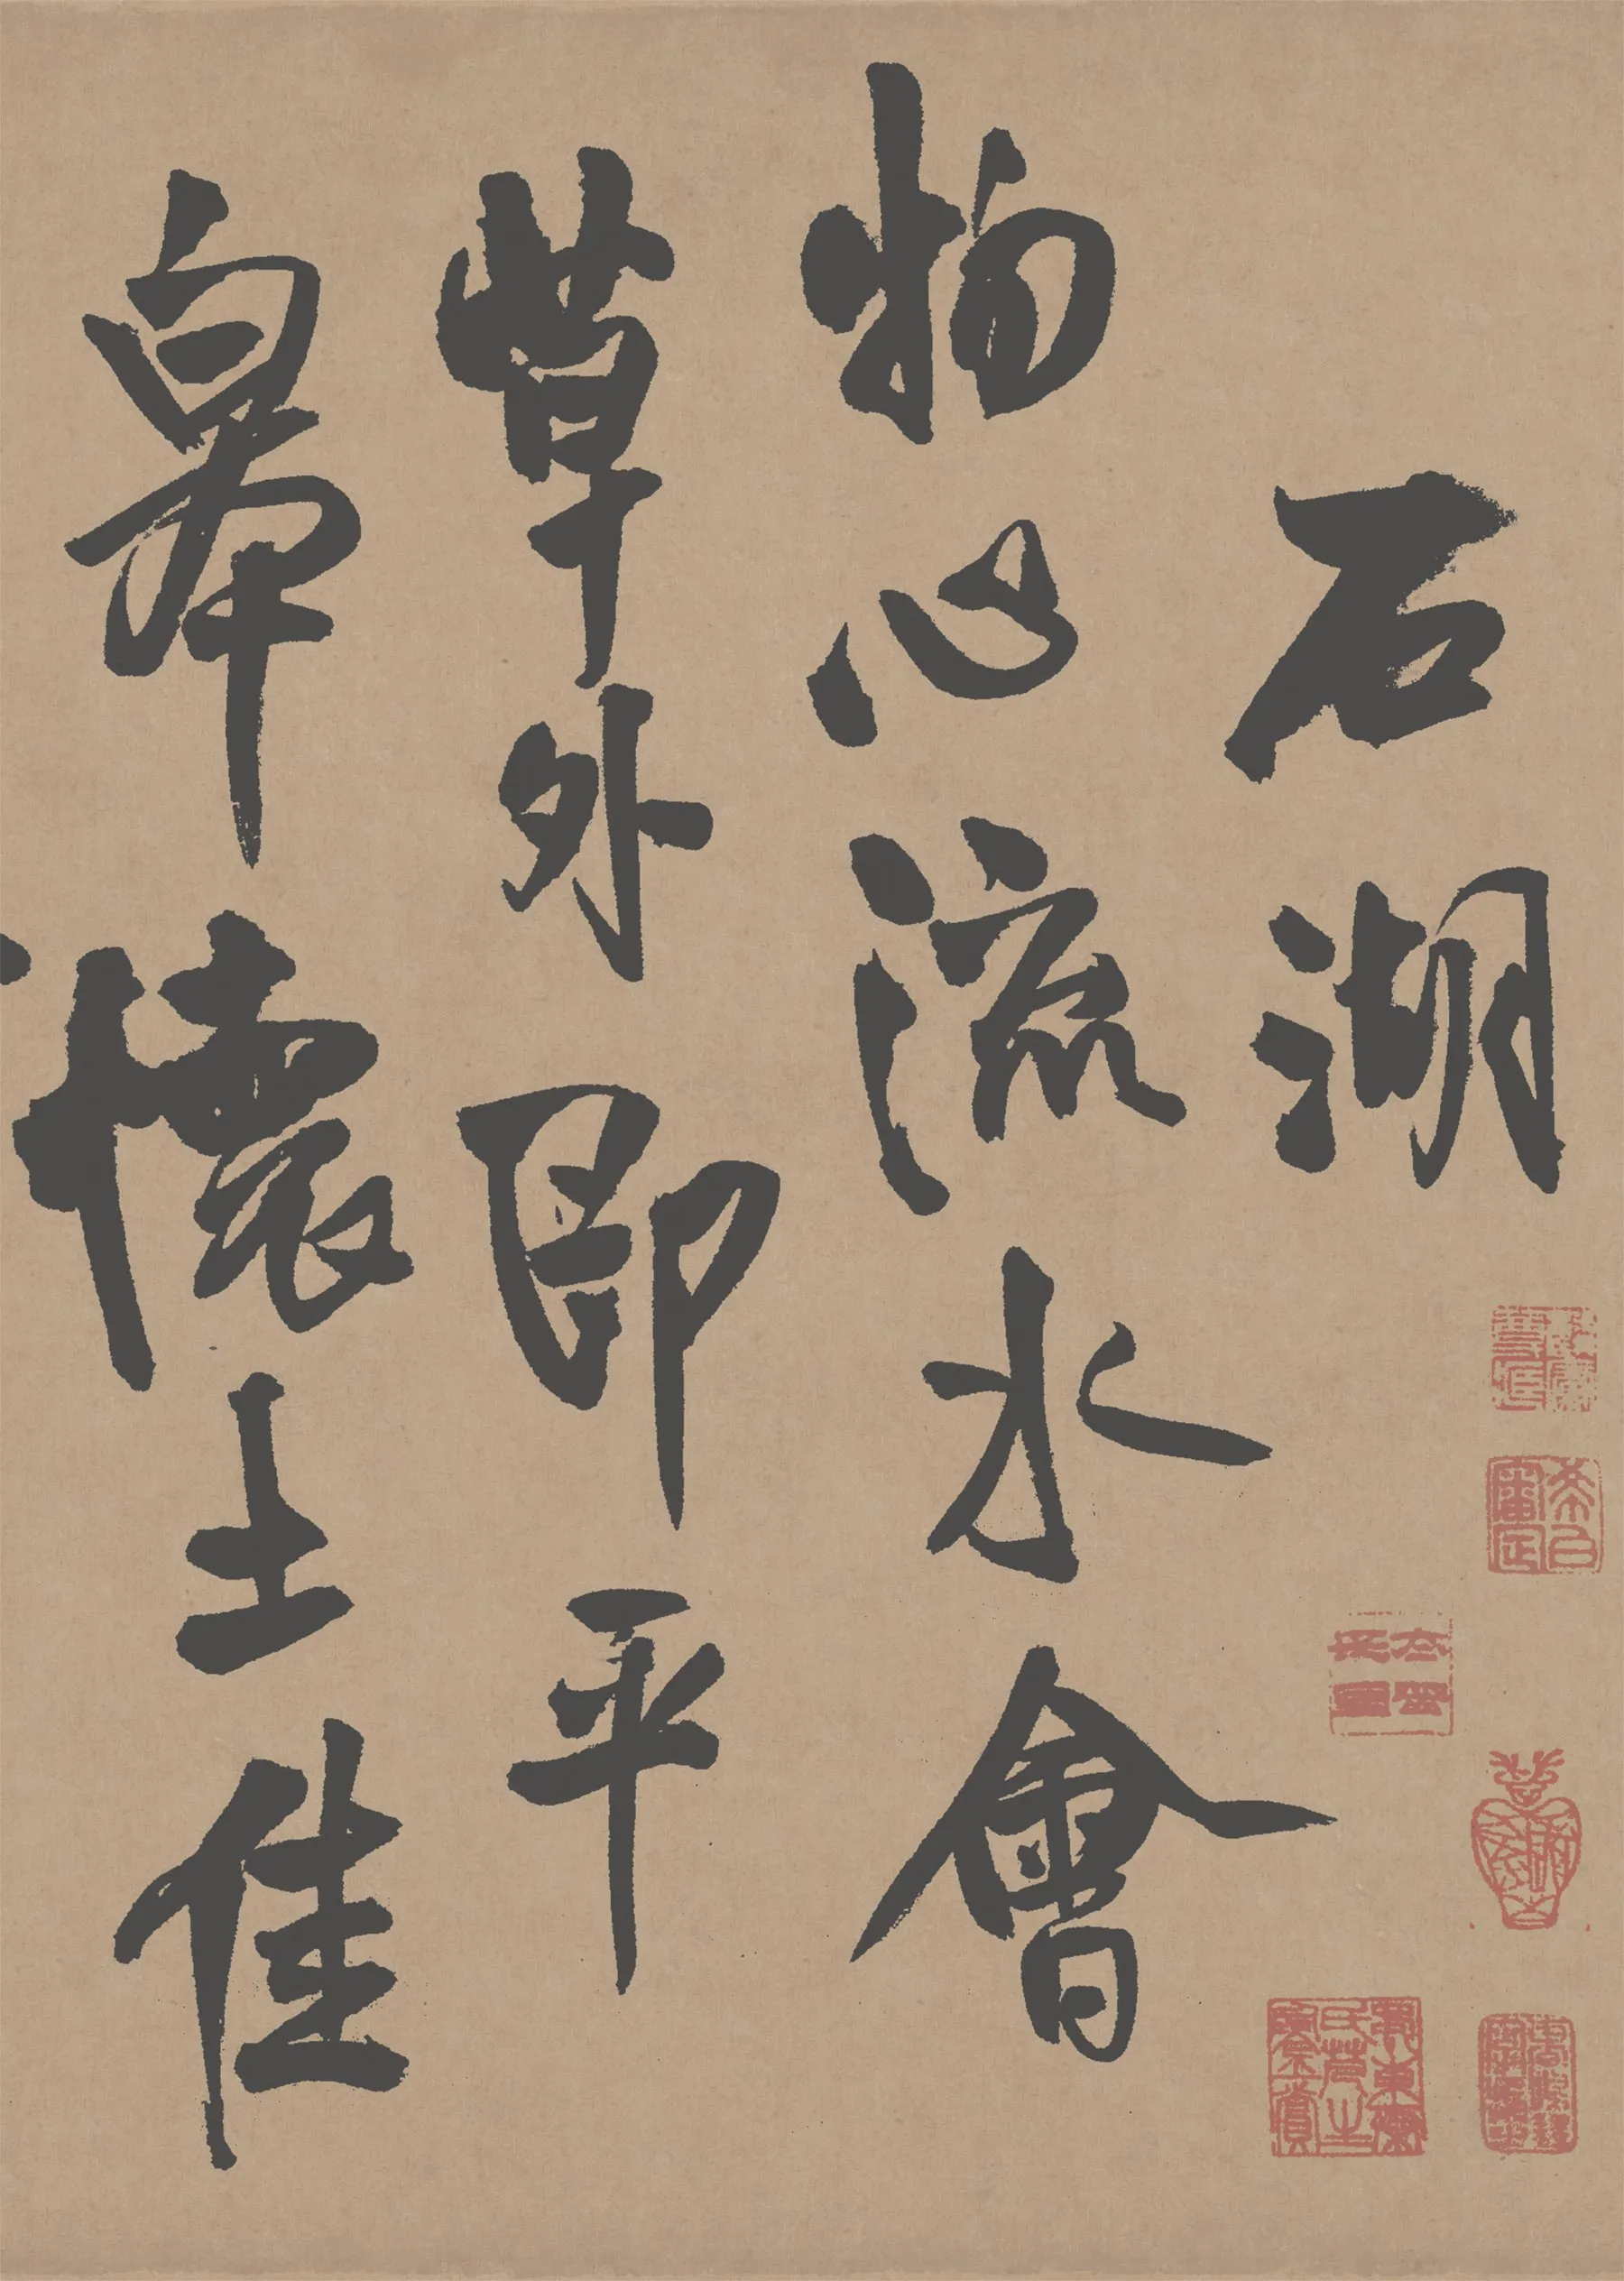 石湖
物心流水會
草外即平
皋懷土佳